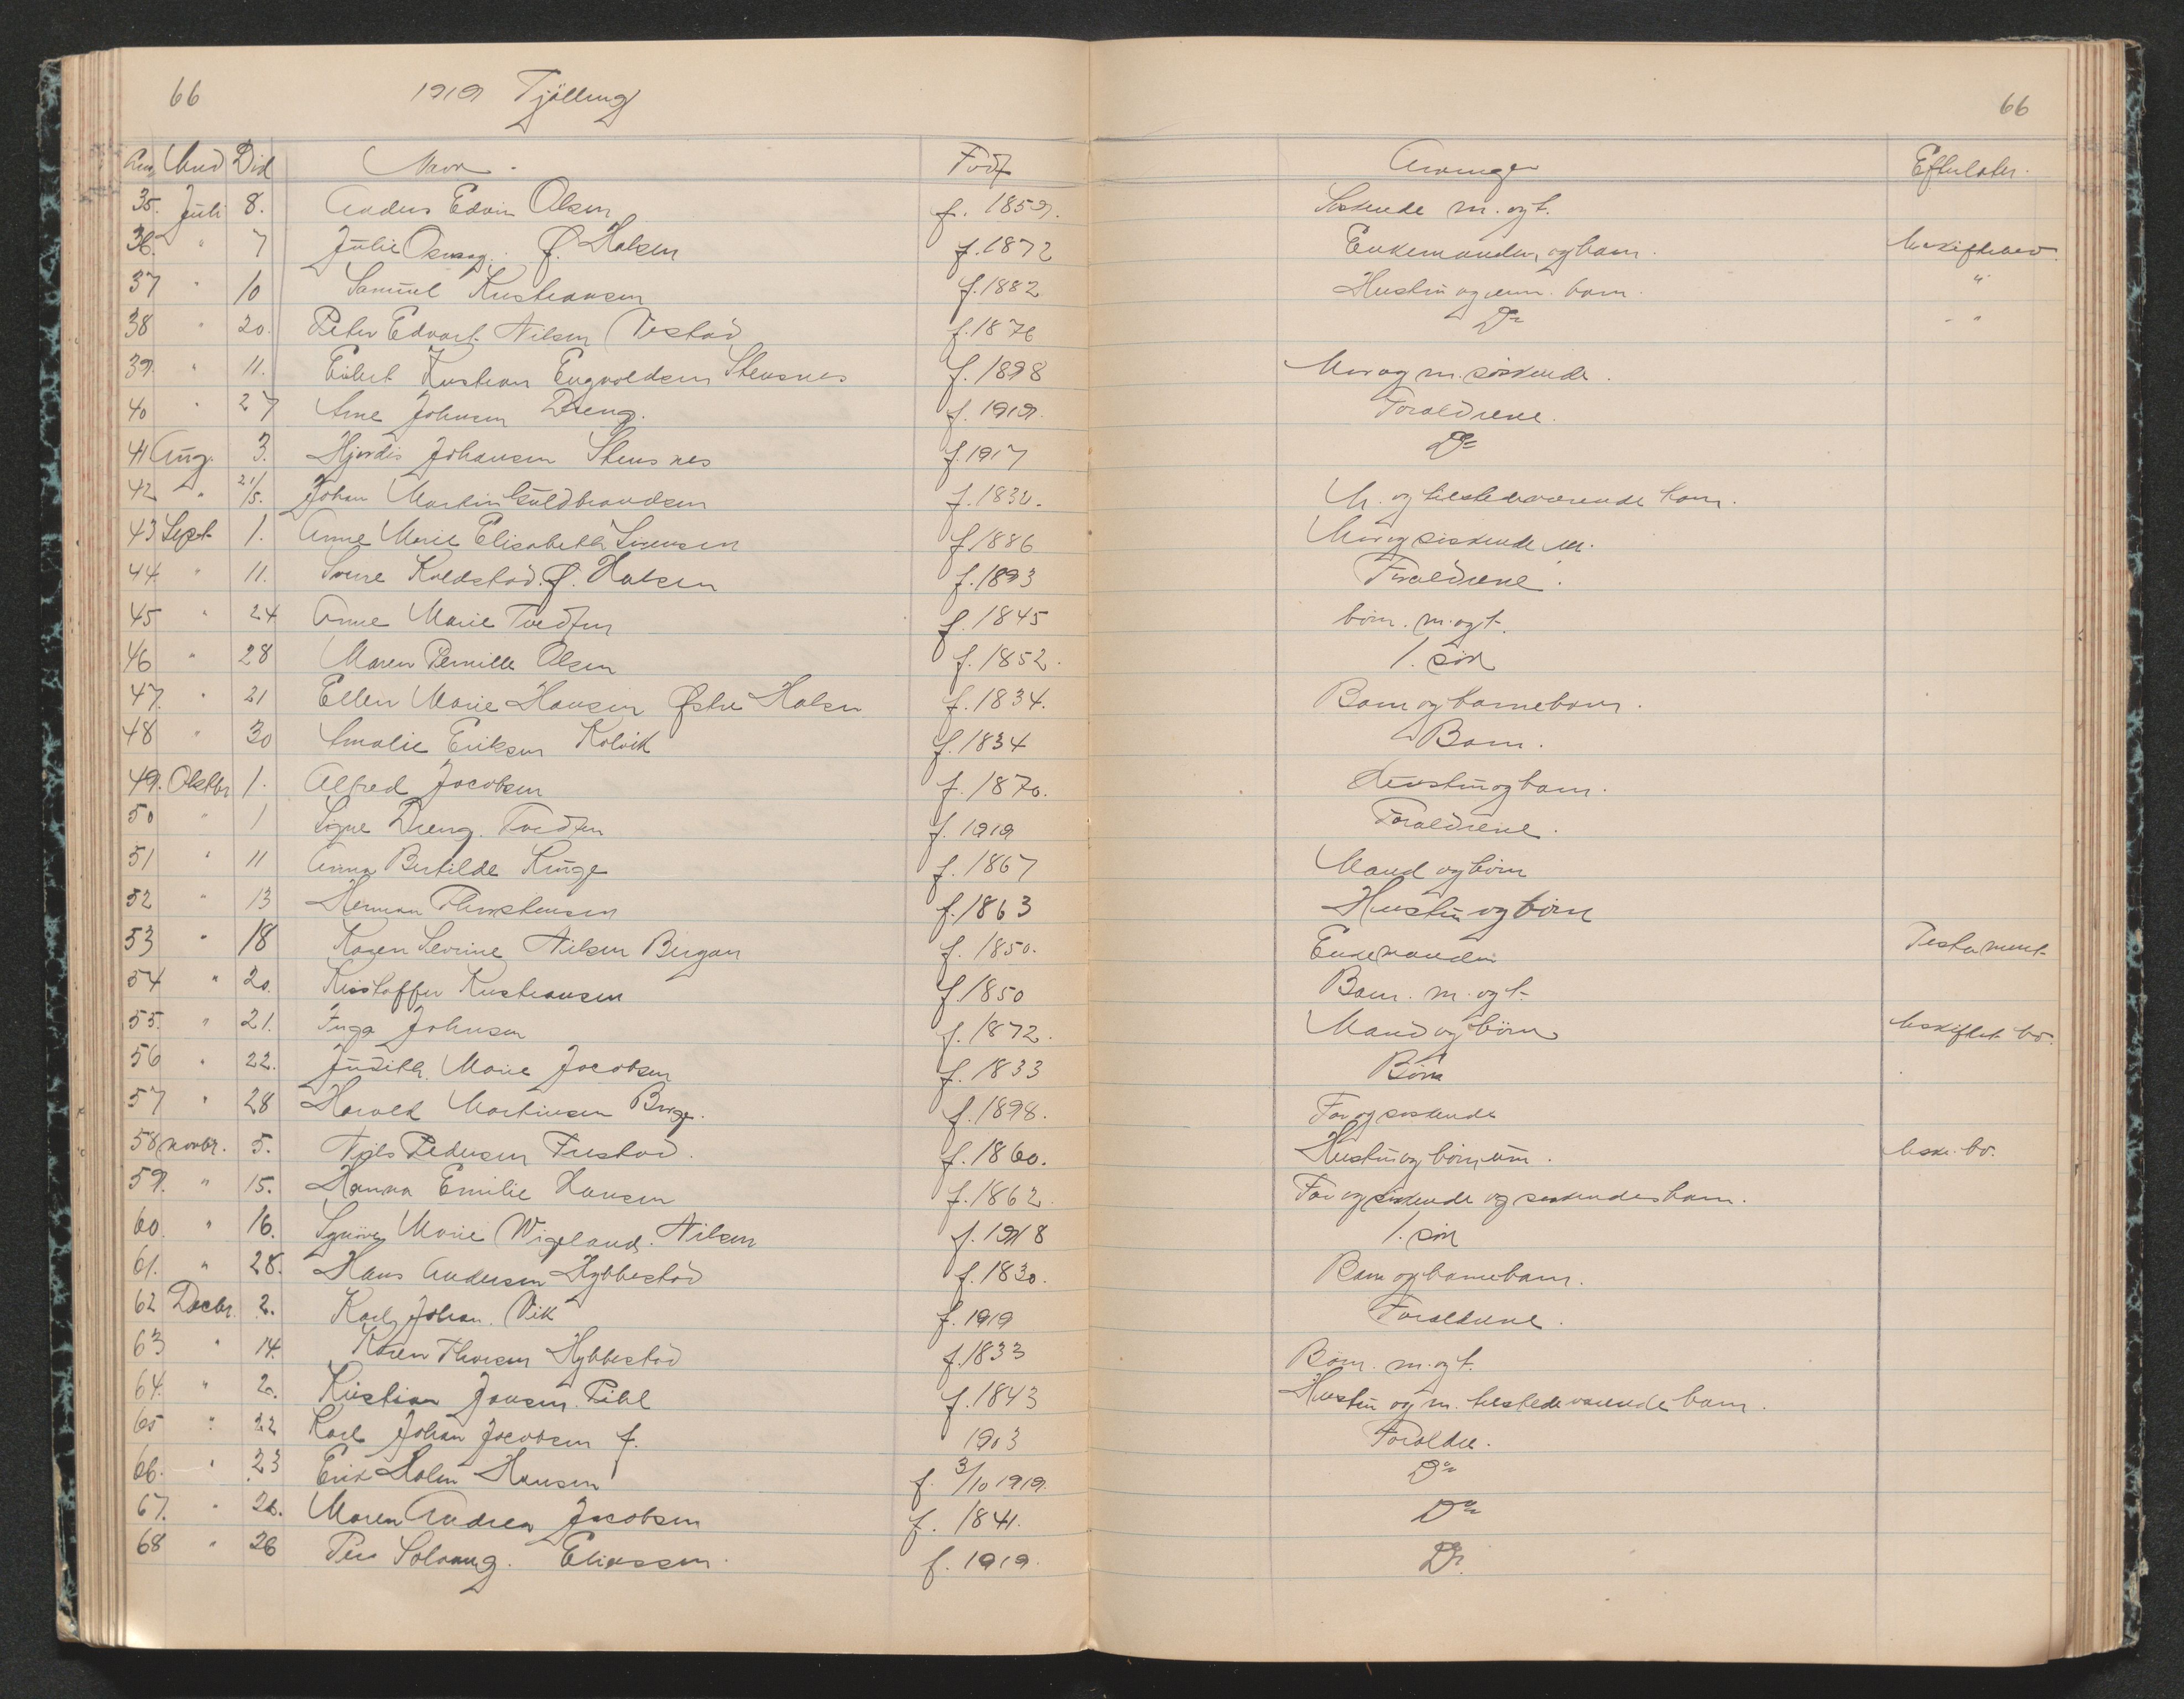 66 1919 Tjölling 66
Død Navn Født Arvinger Efterlater.
35. Juli 8. Anders Edvin Olsen f. 1859. Søskende m. og f.
36. " 7 Julie Ø. Halsen f. 1872 Enkemanden og barn. Uskiftet
37 " 10 Samuel Kristiansen f. 1882 Hustru og um. barn. "
38 " 20. Peter Edvart Nilsen Vestad f. 1876 Do "
39. " 11. Eilert Kristian Engvoldsen Stensnes f. 1898 Mor og m. søskende.
40 " 27 Arne Johnsen Dreng. f. 1919. Foraldrene.
41 Aug. 3. Hjørdis Johansen Stensnes f. 1917 Do
42 " 21/5. Johan Martin Guldbrandsen f. 1832. M. og tilstedeværende barn.
43 Sept 1. Anne Marie Elisabeth f. 1886 Mor og søskende m.
44 " 11. Koldstad. Ø. Halsen f. 1893 Foraldrene.
45 " 24 Anne Marie Tvedten f. 1845 børn. m. og f.
46 " 28 Maren Pernille Olsen f. 1852. 1. søn
47. " 21 Ellen Marie Hansen Østre Halsen f. 1834. Barn og barnebarn.
48 " 30 Amalie Eriksen Kolvik f. 1834 Barn.
49. Oktbr 1. Alfred Jacobsen f. 1870. Hustru og barn.
50 " 1 Signe Dreng. Tvedten f. 1919 Foraldrene.
51 " 11 Anna Bertilde Kruge f. 1867 Mand og børn
52 " 13 Herman Thorstensen f. 1863 Hustru og børn
53 " 18 Karen Severine Nilsen Bergan f. 1850. Enkemanden Testament
54 " 20. Kristoffer Kristiansen f. 1850 Barn. m. og f.
55. " 21. Inga Johnsen f. 1872. Mand og børn Uskiftet bo.
56 " 22. Judith. Marie Jacobsen f. 1833 Børn
57 " 28 Harald Martinsen Berge. f. 1898. Far og søskende
58 novbr. 5. Niels Pedersen Frestad. f. 1860. Hustru og børn, um. Usk. bo.
59. " 15. Hanna Emilie Hansen f. 1862. Far og søskende og søskendes barn.
60. " 16. Synøve Marie Wigeland. Nilsen f. 1918 1. søn
61. " 28. Hans Andersen Hybbestad f. 1830. Barn og barnebarn.
62 Decbr. 2. Karl Johan. Vik f. 1919 Foraldrene.
63 " 14. Karen Thorsen Hybbestad f. 1833 Børn. m. og f.
64. " 2. Kristian Jansen. Pihl f. 1843 Hustru og m. tilstedeværende barn.
65 " 22 Karl Johan Jacobsen f. 1903 Foraldre.
66. " 23 Erik Holm Hansen f. 3/10 1919. Do
67. " 26. Maren Andrea Jacobsen f. 1841. Do
68 " 26 Per Solvang. Eliassen. f. 1919. Do.